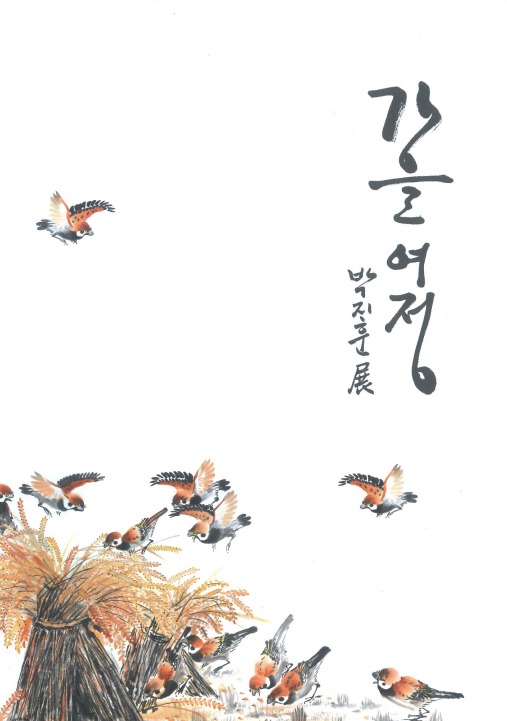 가을 여정
박진훈 展